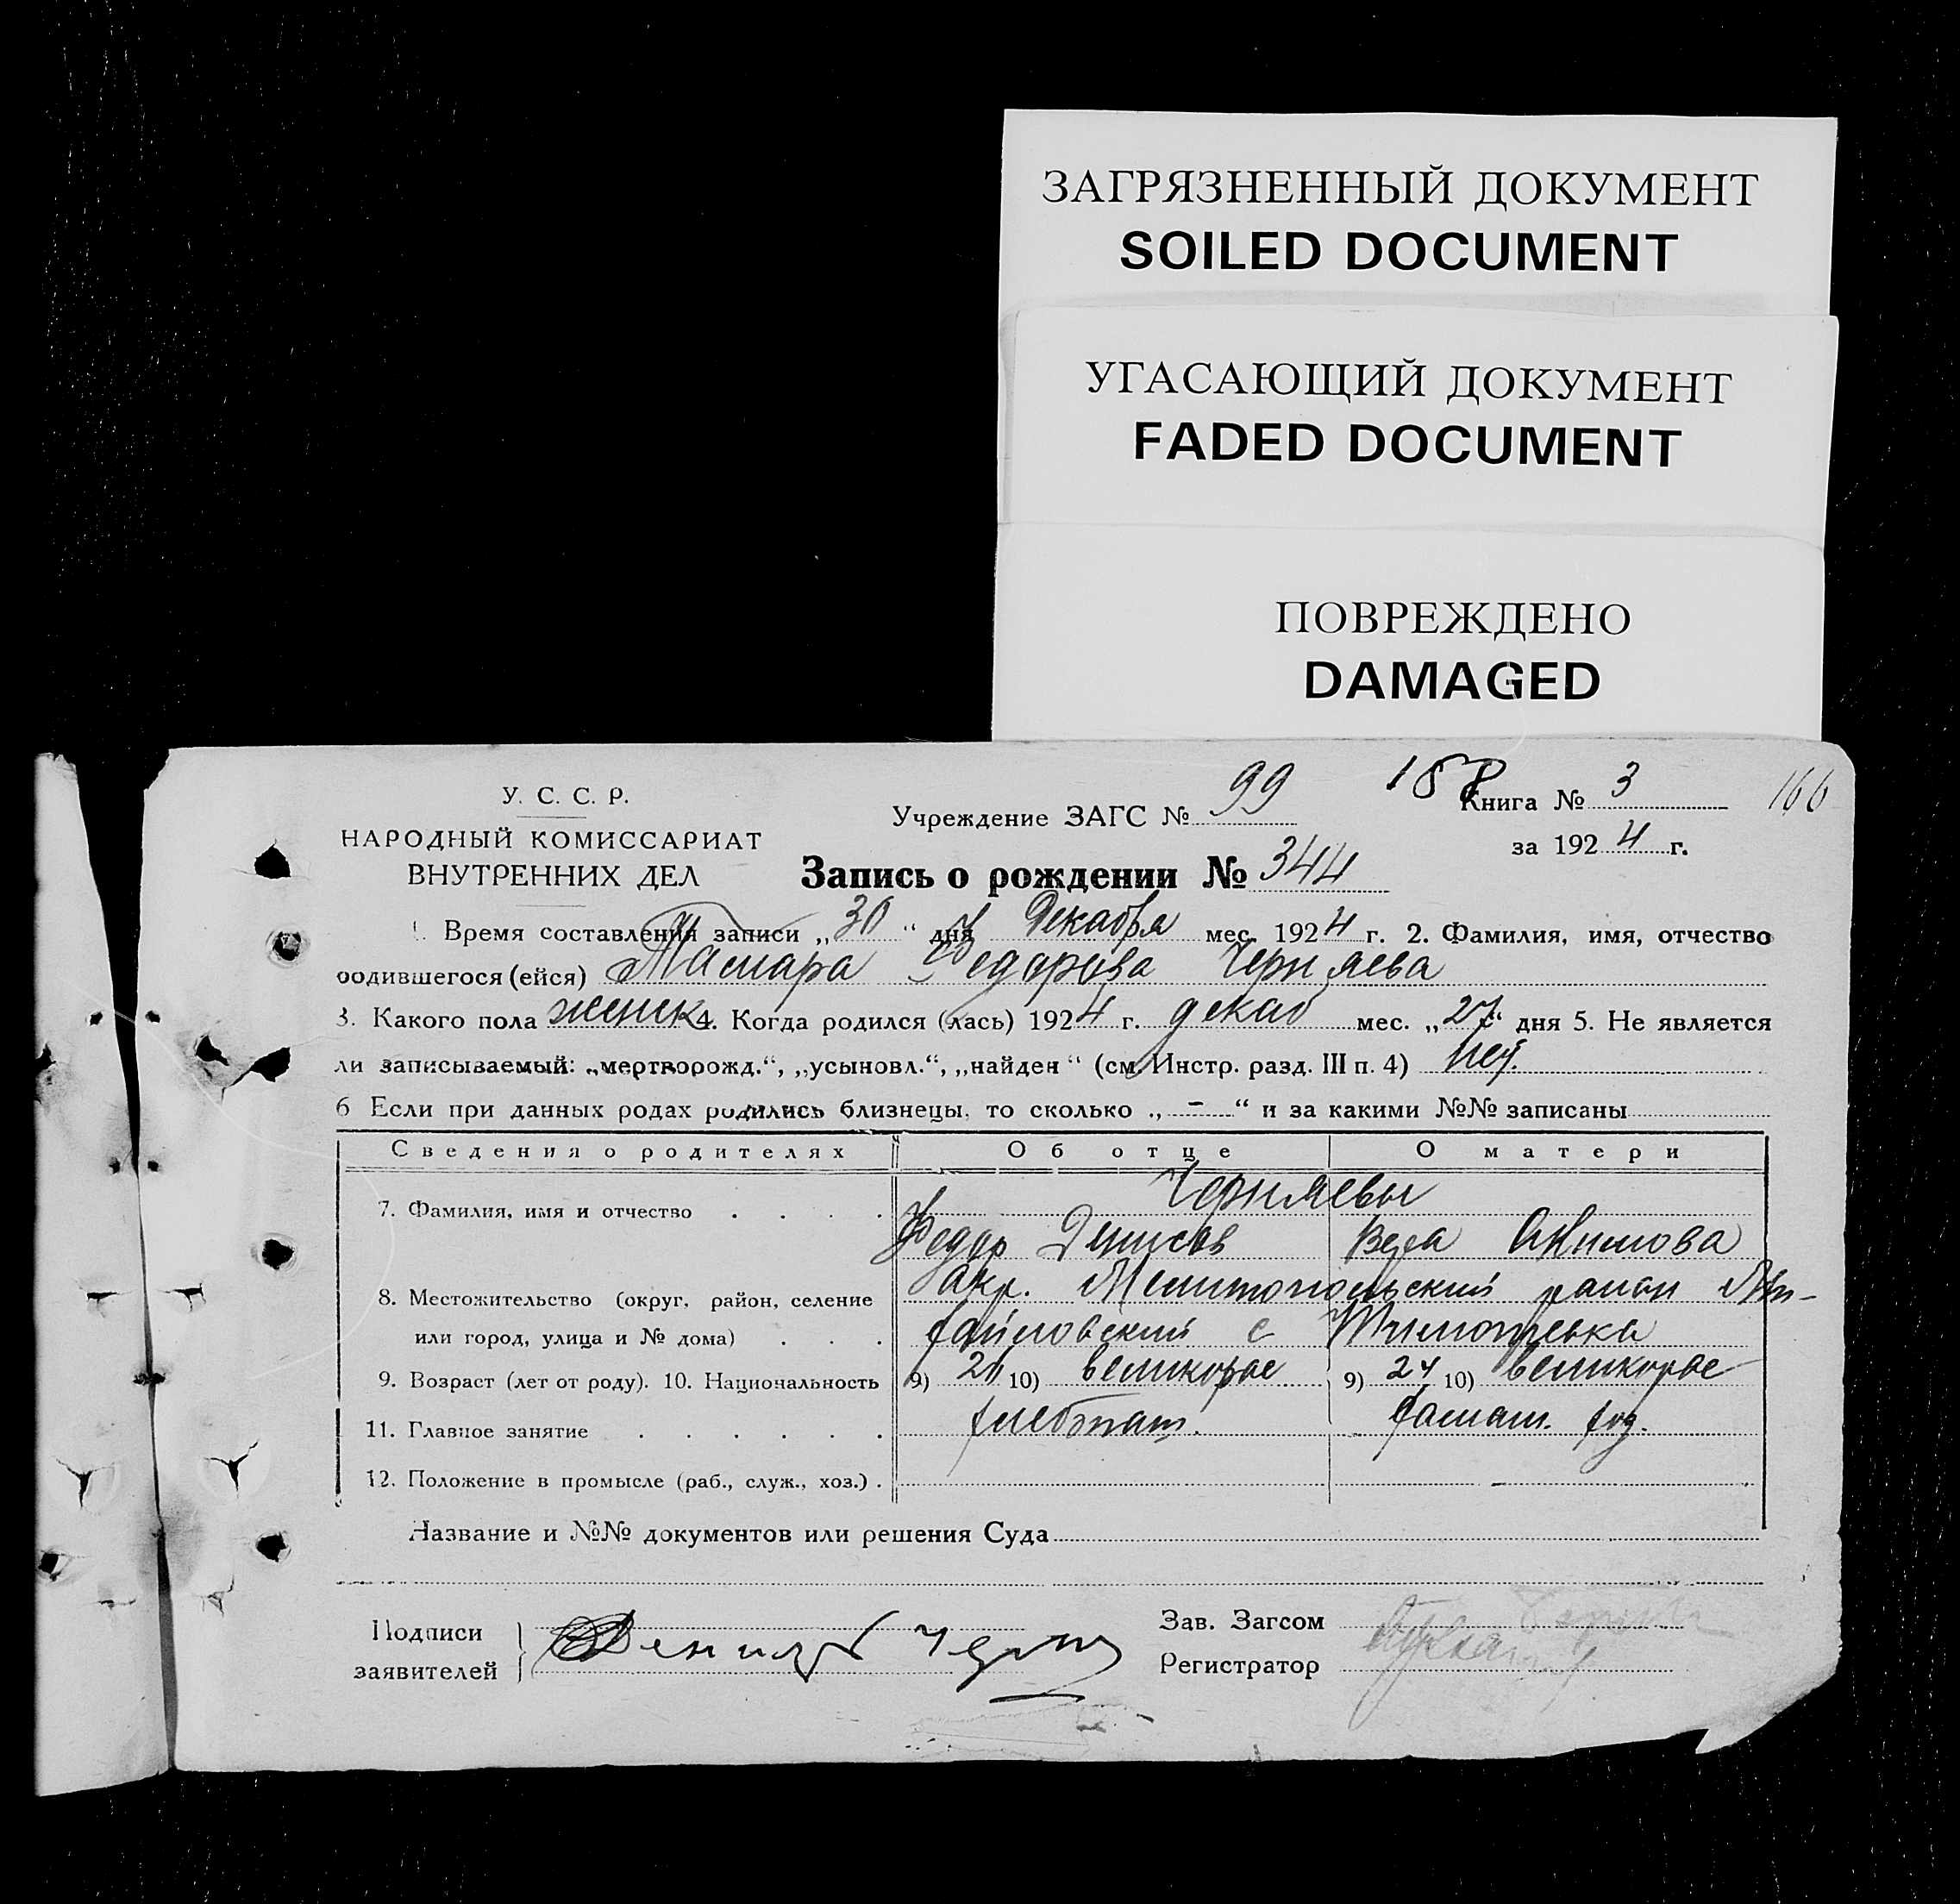 ЗАГРЯЗНЕННЫЙ ДОКУМЕНТ
SOILED DOCUMENT
УГАСАЮЩИЙ ДОКУМЕНТ
FADED DOCUMENT
ПОВРЕЖДЕНО
DAMAGED
У. С. С. Р.
НАРОДНЫЙ КОМИССАРИАТ
ВНУТРЕННИХ ДЕЛ
Учреждение ЗАГС № 99
188 Книга № 3 166
за 1924 г.
Запись о рождении № 344
1. Время составления записи „30“ дня Декабря мес. 1924 г. 2. Фамилия, имя, отчество
родившегося (ейся) Тамара Федорова Черняева
3. Какого пола женск 4. Когда родился (лась) 1924 г. декаб мес. „27“ дня 5. Не является
ли записываемый: „мертворожд.“, „усыновл.“, „найден“ (см. Инстр. разд. III п. 4) нет.
6 Если при данных родах родились близнецы, то сколько „ - “ и за какими №№ записаны
Сведения о родителях Об отце О матери
7. Фамилия, имя и отчество Черняевы
Федор Денисов Вера Акимова
8. Местожительство (округ, район, селение окр. Мелитопольский район Ми-
или город, улица и № дома) хайловский с Тимошевка
9. Возраст (лет от роду). 10. Национальность 9) 10) великорос 9) 24 10) великорос
11. Главное занятие хлебопаш. домаш. хоз.
12. Положение в промысле (раб., служ., хоз.)
Название и №№ документов или решения Суда
Подписи
заявителей
Зав. Загсом
Регистратор